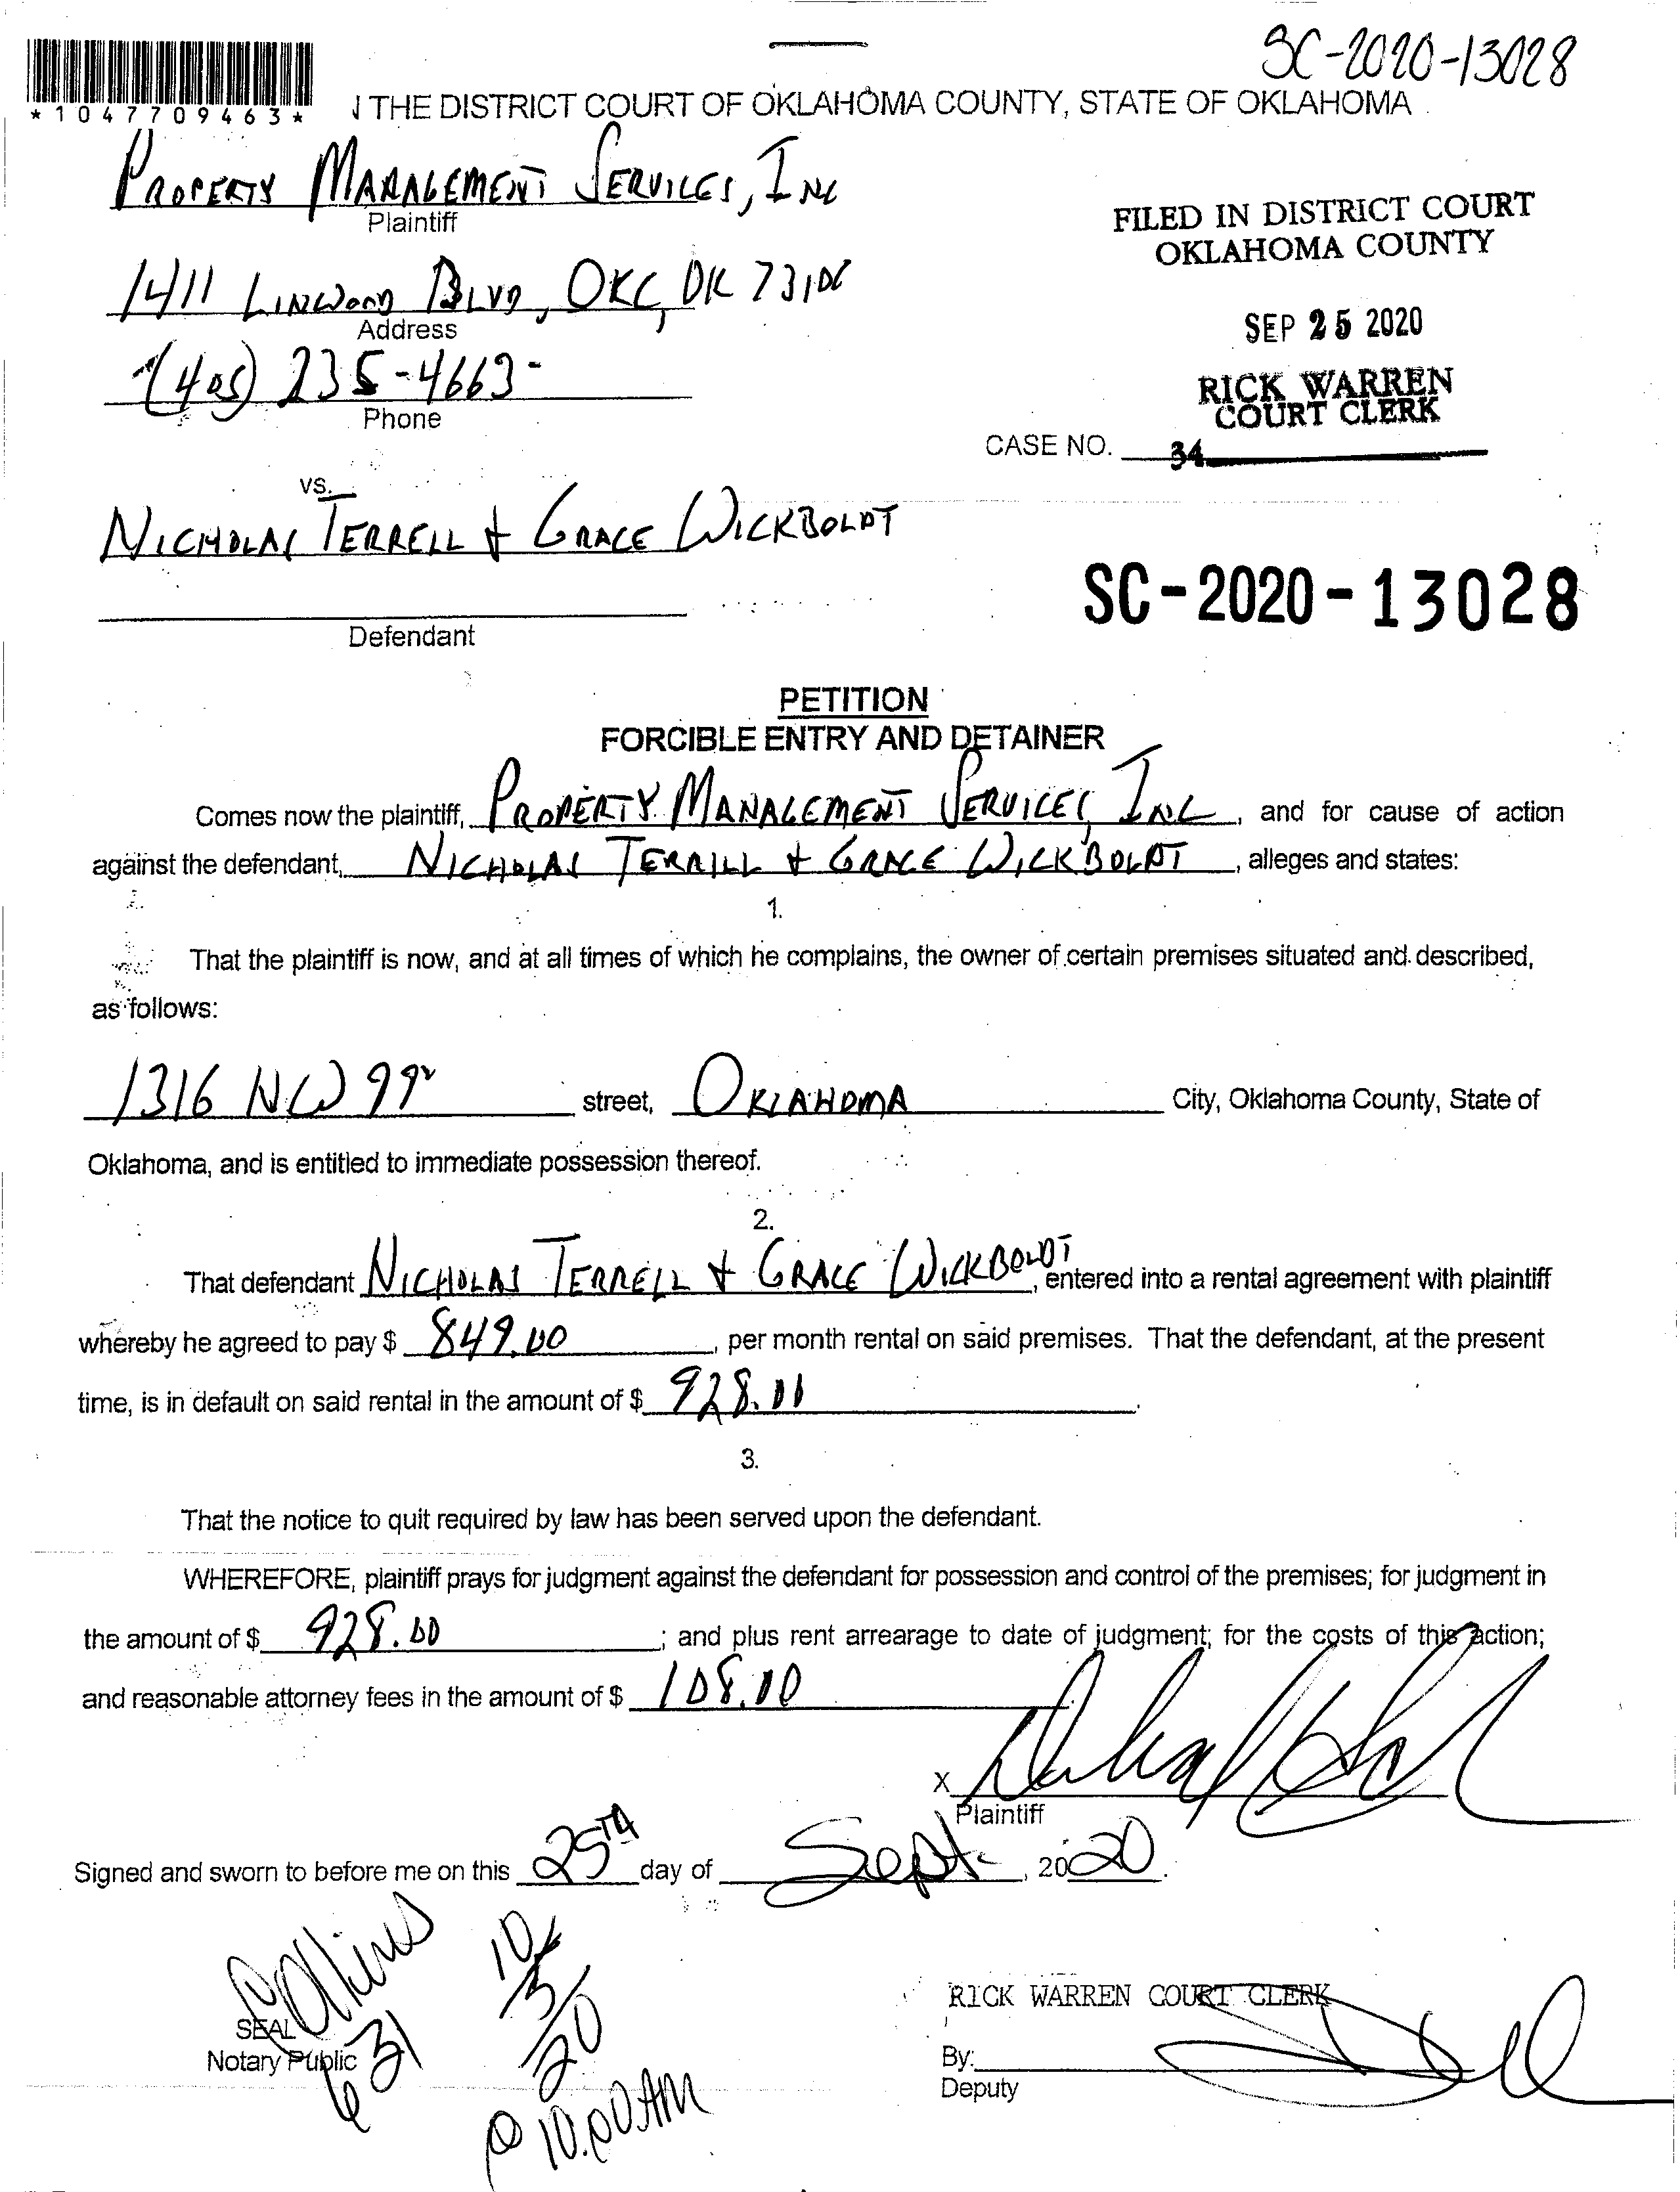 SC-2020-13028
*1047709463*
THE DISTRICT COURT OF OKLAHOMA COUNTY, STATE OF OKLAHOMA
PROPERTY MANAGEMENT SERVICES, INC
Plaintiff
FILED IN DISTRICT COURT
OKLAHOMA COUNTY
1411 LINWOOD BLVD, OKC, OK 73106
Address
SEP 25 2020
(405) 235-4663
Phone
RICK WARREN
COURT CLERK
CASE NO. 34
vs.
NICHOLAS TERRELL + GRACE WICKBOLDT
SC-2020-13028
Defendant
PETITION
FORCIBLE ENTRY AND DETAINER
Comes now the plaintiff, PROPERTY MANAGEMENT SERVICES, INC, and for cause of action
against the defendant, NICHOLAS TERRILL + GRACE WICKBOLDT, alleges and states:
1.
That the plaintiff is now, and at all times of which he complains, the owner of certain premises situated and described,
as follows:
1316 NW 99 street, OKLAHOMA City, Oklahoma County, State of
Oklahoma, and is entitled to immediate possession thereof.
2.
That defendant NICHOLAS TERRELL + GRACE WICKBOLDT, entered into a rental agreement with plaintiff
whereby he agreed to pay $ 849.00, per month rental on said premises. That the defendant, at the present
time, is in default on said rental in the amount of $ 928.00.
3.
That the notice to quit required by law has been served upon the defendant.
WHEREFORE, plaintiff prays for judgment against the defendant for possession and control of the premises; for judgment in
the amount of $ 928.00; and plus rent arrearage to date of judgment; for the costs of this action;
and reasonable attorney fees in the amount of $ 108.00.
X
Plaintiff
Signed and sworn to before me on this 25TH day of Sept., 2020.
Collins
631
10/5/20
@ 10:00 AM
SEAL
Notary Public
RICK WARREN COURT CLERK
By:
Deputy